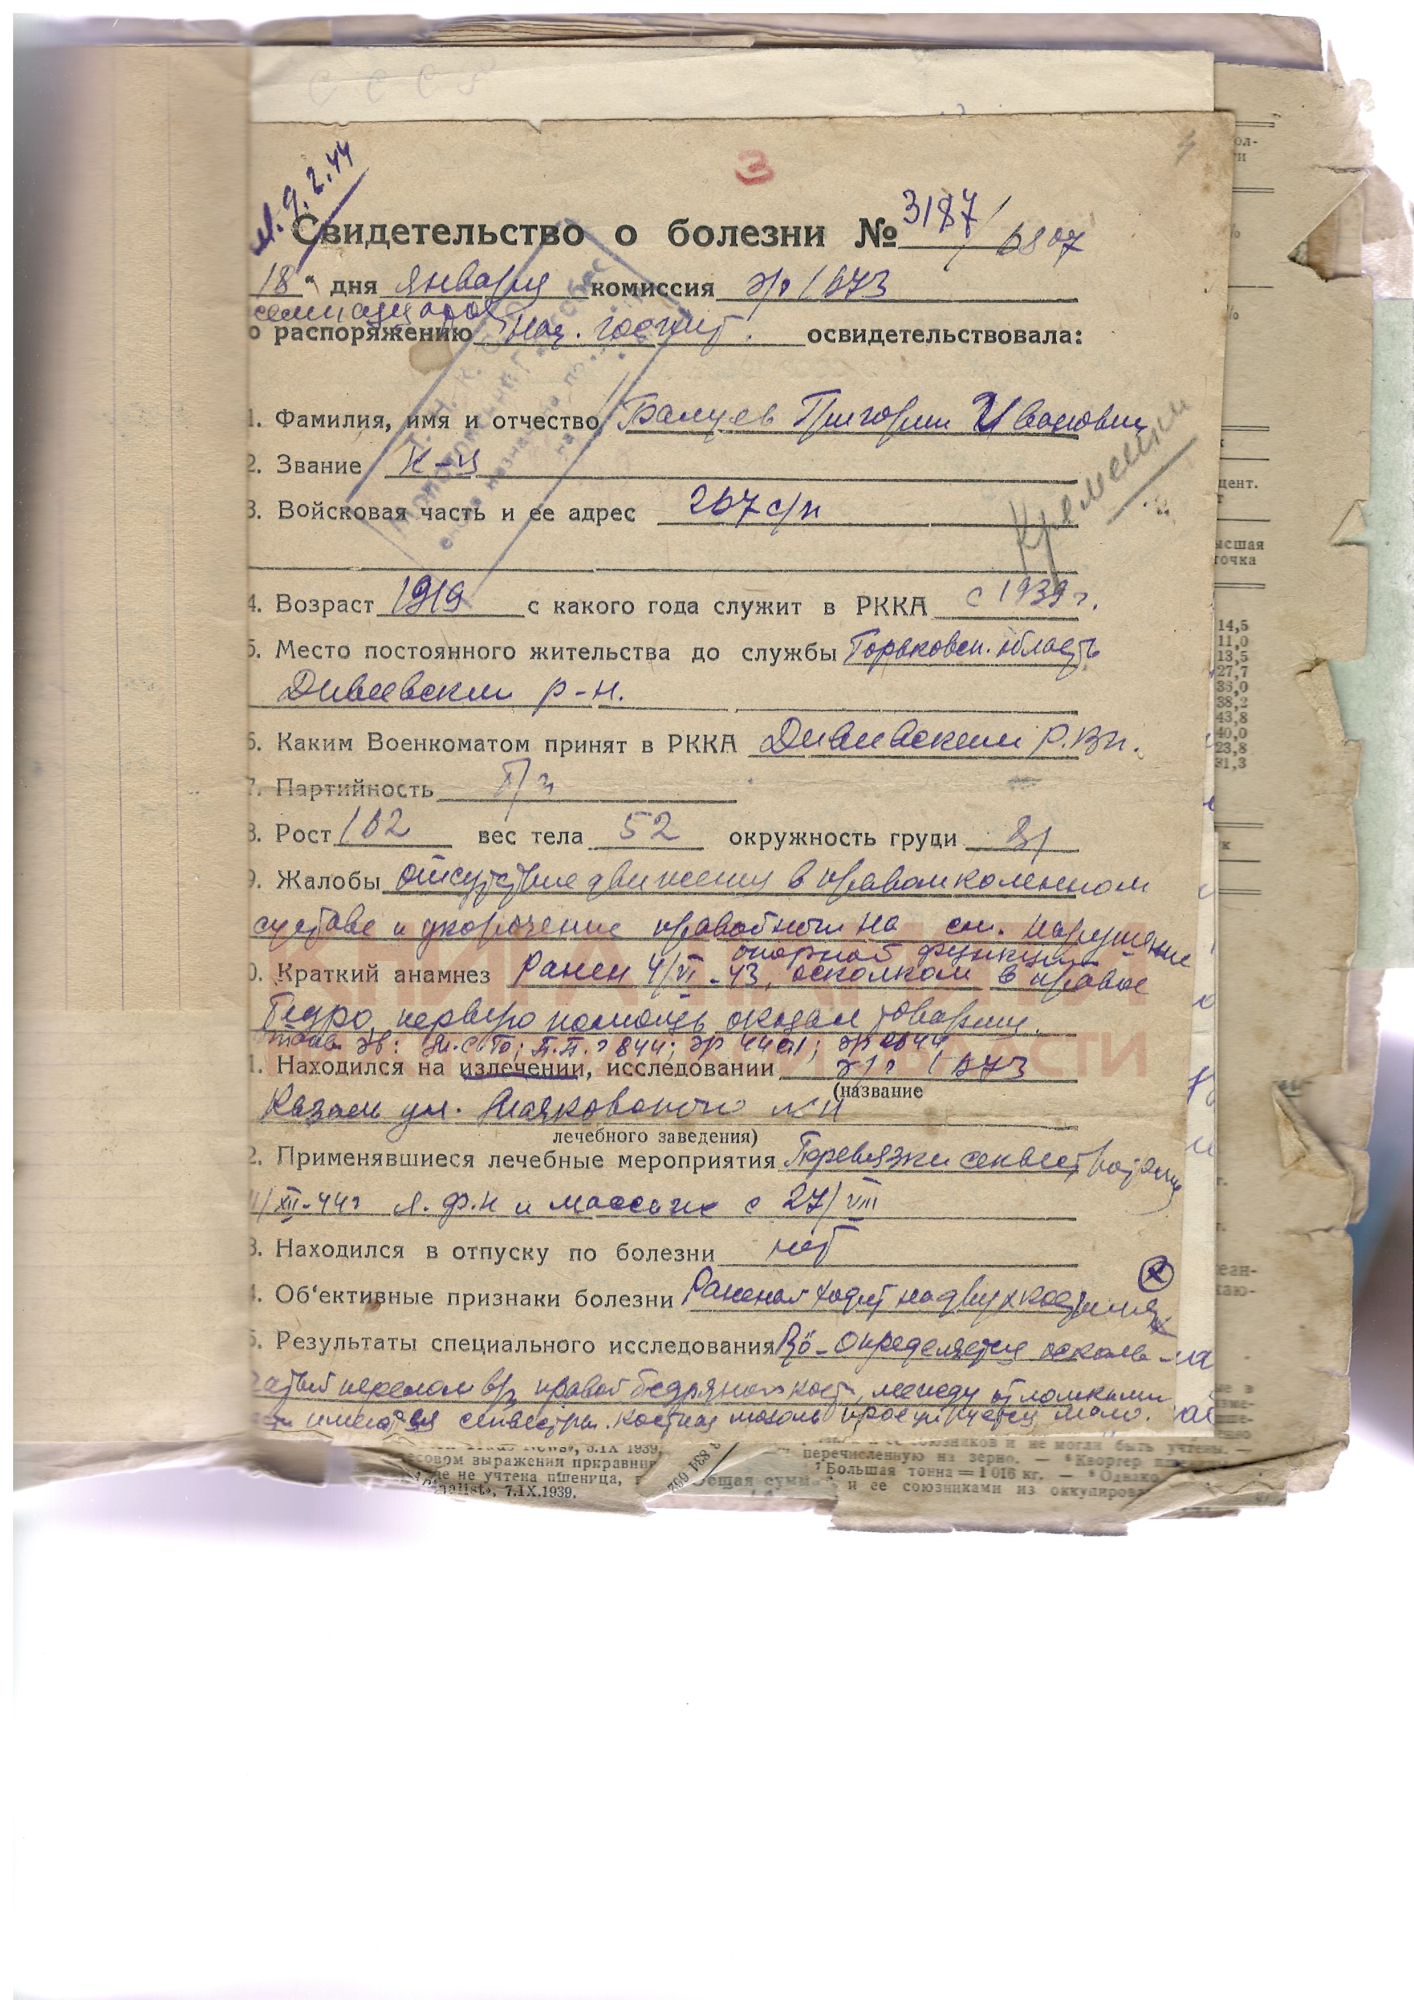 СССР
3
9.2.44
Свидетельство о болезни № 3187/6807
18 " дня января комиссия эг 1673
о распоряжению Нач. госпит. освидетельствовала:
1. Фамилия, имя и отчество Григории Иванович
2. Звание К-ц
3. Войсковая часть и ее адрес 267 с/п
Кременки
4. Возраст 1919 с какого года служит в РККА с 1939 г.
5. Место постоянного жительства до службы Горьковск. область
Дивеевский р-н.
6. Каким Военкоматом принят в РККА Дивеевским Р.В.К.
7. Партийность
8. Рост 162 вес тела 52 окружность груди 81
9. Жалобы отсутствие движения в правом коленном
суставе и укорочение правой ноги на см. нарушение
опорной функции
0. Краткий анамнез Ранен 4/VI-43, осколком в правое
бедро, первую помощь оказал товарищ.
эг 4491; эг 2644
1. Находился на излечении, исследовании эг 1673
(название
Казань ул. Маяковского
лечебного заведения)
2. Применявшиеся лечебные мероприятия Перевязки
/XII-44г л.ф.к и массаж с 27/VIII
3. Находился в отпуску по болезни нет
4. Об'ективные признаки болезни Раненый ходит на двух костылях
5. Результаты специального исследования Rö - определяется осколь-
чатый перелом в/з правой бедренной кости, между отломками
имеются секвестры. костная мозоль мало.
КНИГА ПАМЯТИ
14,5
11,0
13,5
27,7
36,0
38,2
43,8
40,0
23,8
31,3
News», 5.IX 1939,
совом выражении
не учтена пшеница,
7.IX.1939.
и ее союзников и не могли быть учтены. —
перечисленную на зерно. — ⁶ Квортер
⁷ Большая тонна = 1 016 кг. — ⁸ Однако
общая сумма и ее союзниками из